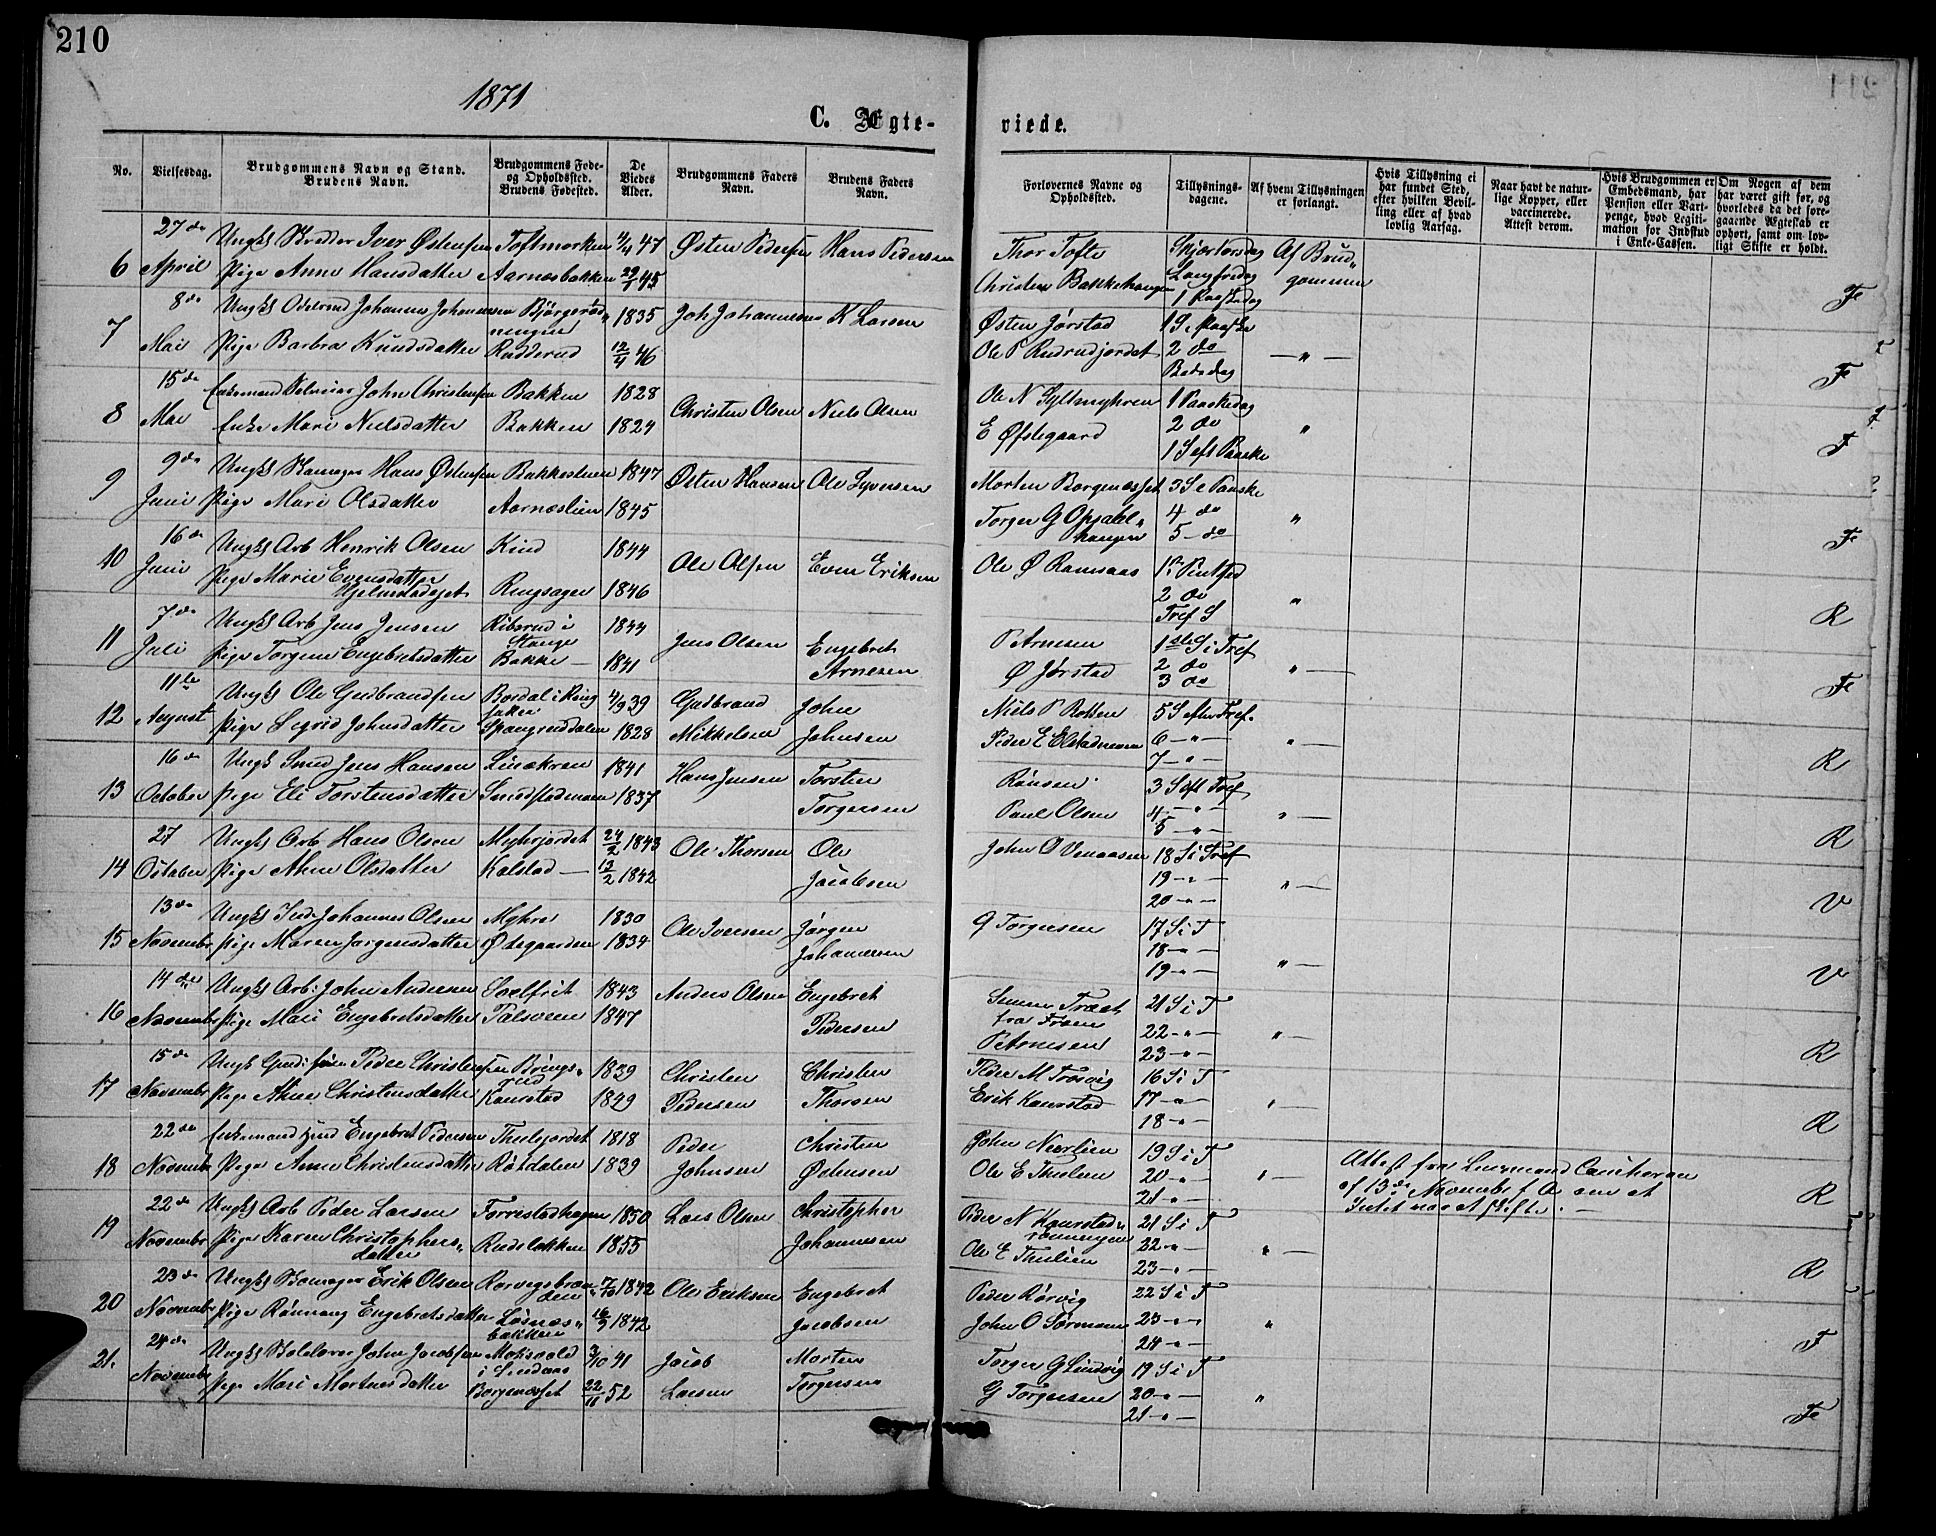 210
1871
C. Ægte-
viede.
No.
Vielsesdag.
Brudgommens Navn og Stand.
Brudens Navn.
Brudgommens Føde-
og Opholdssted.
Brudens Fødested.
De
Viedes
Alder.
Brudgommens Faders
Navn.
Brudens Faders
Navn.
Forlovernes Navne og
Opholdssted.
Tillysnings-
dagene.
Af hvem Tillysningen
er forlangt.
Hvis Tillysning ei
har fundet Sted,
efter hvilken Bevil-
ling eller af hvad
lovlig Aarsag.
Naar havt de natur-
lige Kopper, eller
vaccinerede.
Attest derom.
Hvis Brudgommen er
Embedsmand, har
Pension eller Vart-
penge, hvad Legiti-
mation for Indskud
i Enke-Cassen.
Om Nogen af dem
har været gift før, og
hvorledes da det fore-
gaaende Ægteskab er
ophørt, samt om lov-
ligt Skifte er holdt.
6 27de April
Ungk Iver Østensen Toftmorken 4/4 47 Østen Pedersen Hans Pedersen
Pige Anne Hansdatter Aarnæsbakken 29/1 45
Thor Tofte Skjærtorsdag Af Brud-
Christen Bakkehaugen Langfredag gommen
1 Paaskedag
Fe
7 8de Mai
Ungk Johannes Johannesen 1835 Joh Johannesen K Larsen
Pige Barbra Knudsdatter Rudderud 12/4 46
Østen Jørstad 1 S e Paaske
Ole P Rudrudjordet 2 do — " —
Bededag
Fe
8 15de Mai
Enkemand John Christensen Bakken 1828 Christen Olsen Niels Olsen
Enke Mari Nielsdatter Bakken 1824
Ole N Syltmyhren 1 Paaskedag
E Øfstegaard 2 do "
1 S eft Paaske
F
9 9de Juni
Ungk Hans Østensen Bakkestuen 1847 Østen Hansen Ole Syversen
Pige Mari Olsdatter Aarnæslien 1845
Morten Borgenæsset 3 S e Paaske
Torger G Opsahl- 4 do "
haugen 5 - do
Fe
10 16de Juni
Ungk Arb Henrik Olsen Kind 1844 Ole Olsen Even Eriksen
Pige Marie Evensdatter Ringsager 1846
Hjelmstadejet
Ole Ø Ramsaas
2 do "
Tref S
R
11 7de Juli
Ungk Arb Jens Jensen Ribserud i 1844 Jens Olsen Engebret
Stange
Pige Torgine Engebretsdatter Bakke — 1841 Arnesen
P Arnesen 1ste S i Tref
Ø Jørstad 2 do " —
3 do
Fe
12 11te August
Ungk Ole Gudbrandsen Bordal i Ring 4/9 39 Gudbrand John
saker
Pige Segrid Johnsdatter Spangruddalen 1828 Mikkelsen Johnsen
Niels P Rotten 5 S efter Tref.
Peder E Elstadmoen 6 - " - " —
7 - " -
R
13 16de October
Ungk Smed Jens Hansen Linækren 1841 Hans Jensen Torsten
Pige Eli Torstensdatter Smedstadmoen 1837 Torgersen
Rønsen 3 S eft Tref
Paul Olsen 4 - " - " —
5 - " -
R
14 27 October
Ungk Arb Hans Olsen Myhrjordet 24/2 1843 Ole Thorsen Ole
Pige Ahne Olsdatter Kalstad — 12/2 1842 Jacobsen
John O Venaasen 18 S i Tref
19 - " - " —
20 - " -
V
15 13de Novembr
Ungk Ind Johannes Olsen Myhre 1830 Ole Iversen Jørgen
Pige Maren Jørgensdatter Ødegaarden 1834 Johannesen
G Torgersen 17 S i T
18 - " -
19 - " - " —
V
16 14de Novembr
Ungk Arb: John Andersen 1843 Anders Olsen Engebret
Pige Mari Engebretsdatter Pålsveen 1847 Pedersen
Træet 21 S i T
fra Froen 22 - " - " —
P Arnesen 23 - " -
R
17 15de Novembr
Ungk Peder Christensen 1839 Christen Christen
Pige Ahne Christensdatter Kanestad 1849 Pedersen Thorsen
Peder M Trosvig 16 S i T
Erik Kanestad 17 - " - " —
18 - " -
R
18 22de Novembr
Enkemand Ind Engebret Pedersen Thulejordet 1818 Peder Christen
Pige Anne Christensdatter Råtdalen 1839 Johnsen Ødensen
John Neerlien 19 S i T
Ole E Thulien 20 - " - " —
21 - " -
Attest fra Lensmand
af 13de Novembr f. A. om at
Intet var at skifte. —
R
19 22de Novembr
Ungk Arb Peder Larsen Forrestadhagen 1850 Lars Olsen Christopher
Pige Karen Christophers- Rudsløkken 1855 Johannesen
datter
Peder N Kanestad- 21 S i T
rønningen 22 - " - " —
Ole E Thulien 23 - " -
R
20 23de Novembr
Ungk Erik Olsen Rorvigsbræn- 7/10 1842 Ole Eriksen Engebret
den
Pige Rønnaug Engebretsdatter Losnæs- 16/9 1842 Jacobsen
bakken
Peder Rørvig 22 S i T
John O Sørmoen 23 - " - "
24 - " -
F
21. 24de Novembr
Ungk John Jacobsen 3/10 41 Jacob Morten
Pige Mari Mortensdatter Borgenæsset 22/11 52 Larsen Torgersen
Torger G Sundvig 19 S i T
G Torgersen 20 - " - "
21 - " -
Fe